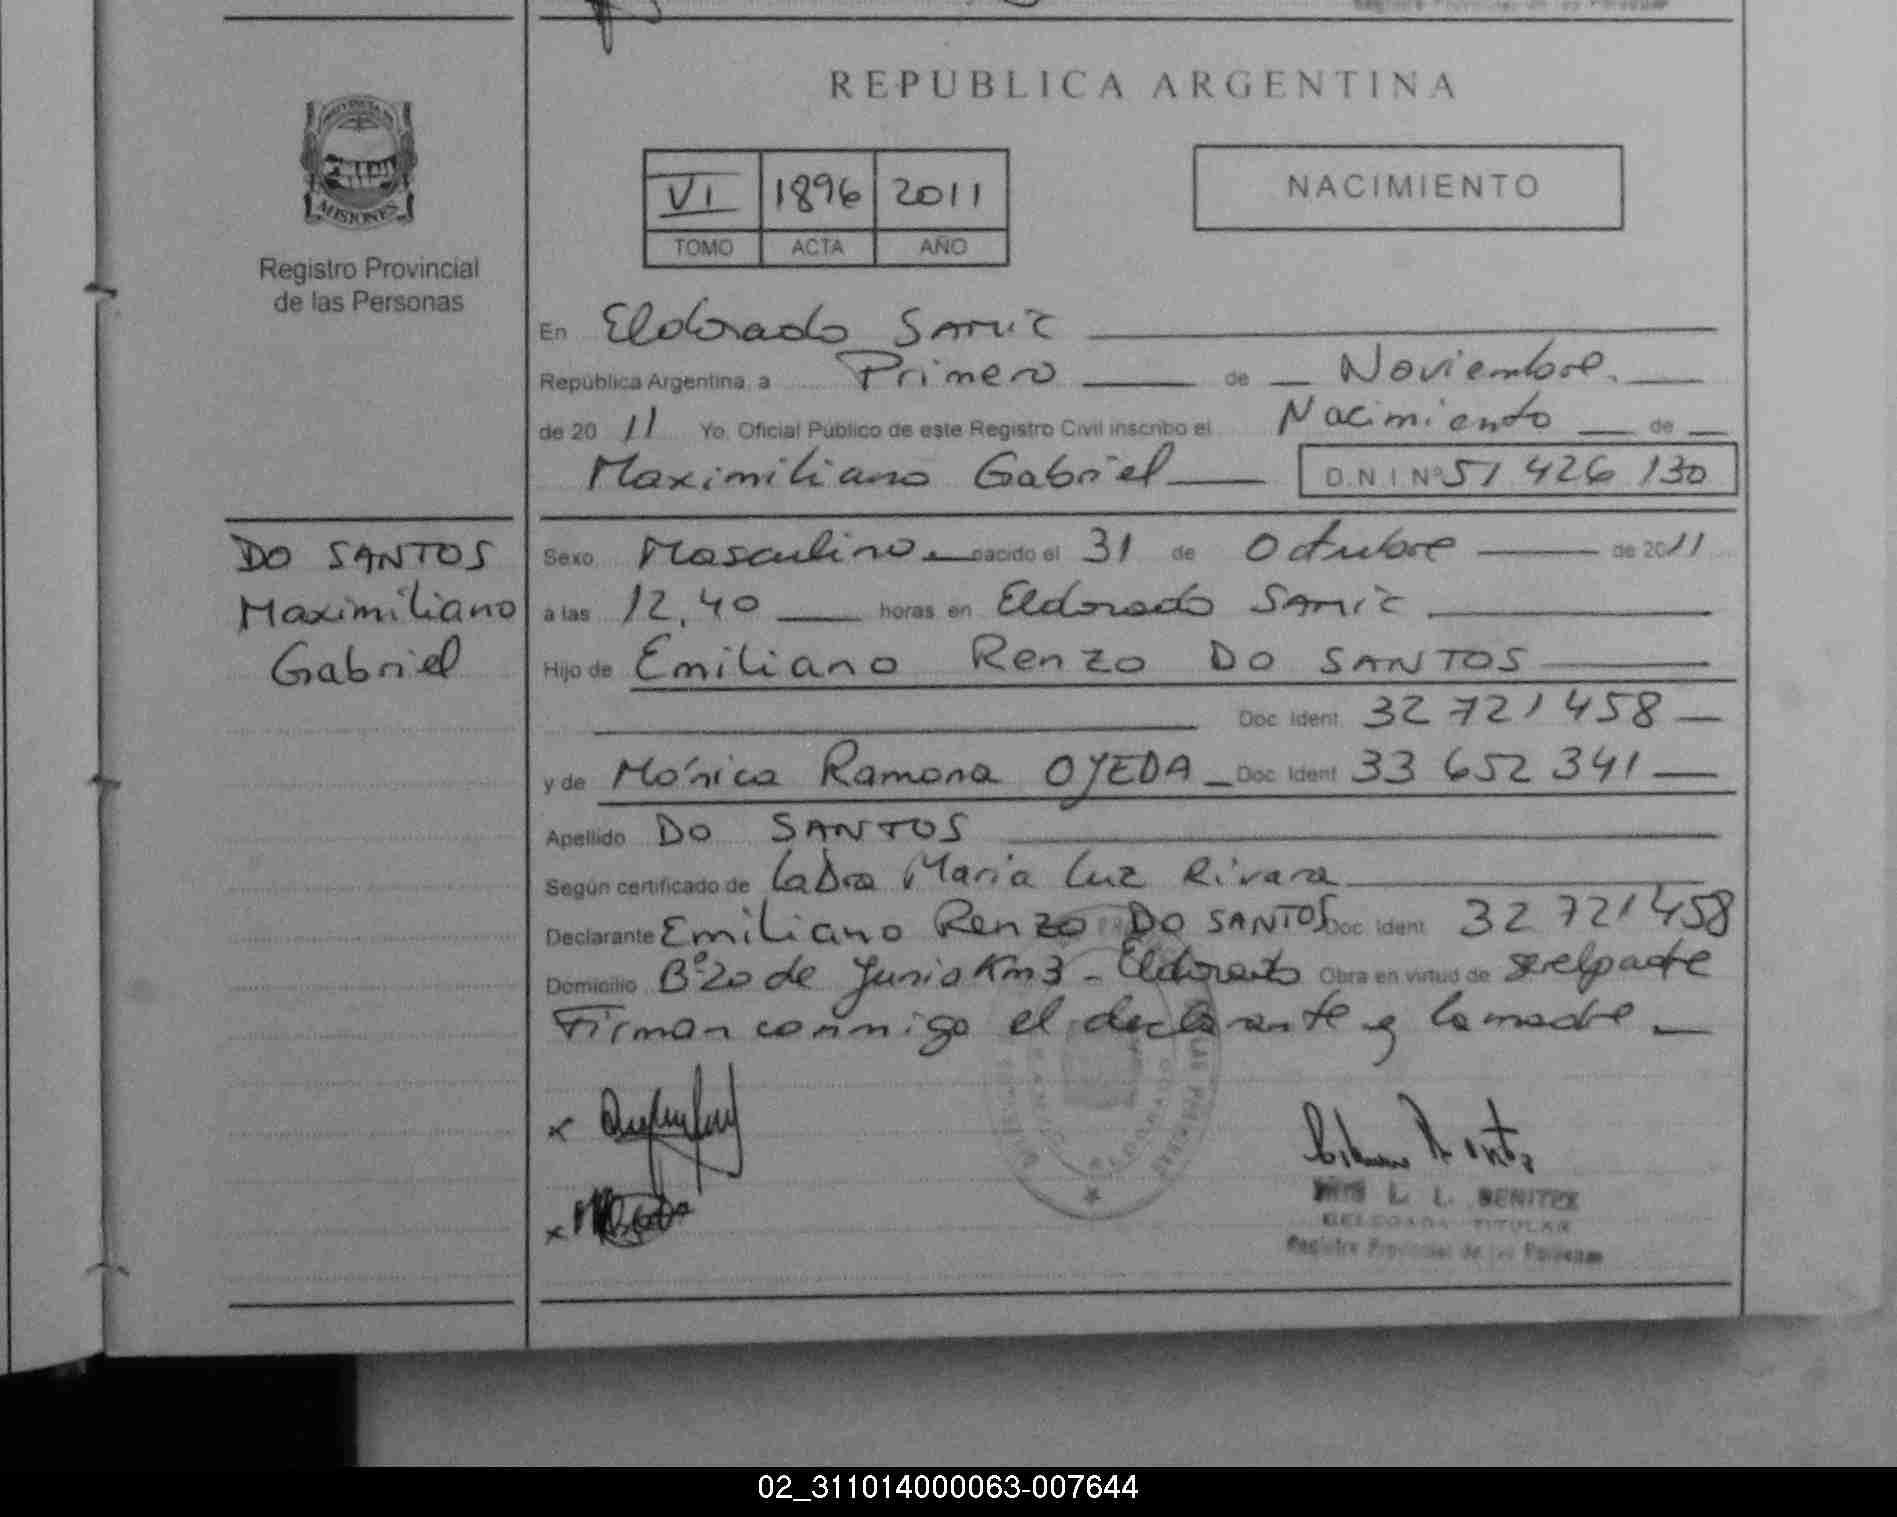 REPUBLICA ARGENTINA
PROVINCIA DE
MISIONES
Registro Provincial
de las Personas
VI 1896 2011
TOMO ACTA AÑO
NACIMIENTO
En Eldorado SAMIC
República Argentina, a Primero de Noviembre.
de 2011 Yo, Oficial Público de este Registro Civil inscribo el Nacimiento de
Maximiliano Gabriel D.N.I. Nº 51 426 130
DO SANTOS
Maximiliano
Gabriel
Sexo Masculino nacido el 31 de Octubre de 2011
a las 12,40 horas en Eldorado SAMIC
Hijo de Emiliano Renzo DO SANTOS
Doc. Ident. 32 721 458
y de Mónica Ramona OJEDA Doc. Ident. 33 652 341
Apellido DO SANTOS
Según certificado de la Dra Maria Luz Rivara
Declarante Emiliano Renzo DO SANTOS Doc. Ident. 32 721 458
Domicilio Bº 20 de Junio Km 3 - Eldorado Obra en virtud de ser el padre
Firman conmigo el declarante y la madre
x
x
L. L. BENITEZ
DELEGADA TITULAR
Registro Provincial de las Personas
02_311014000063-007644